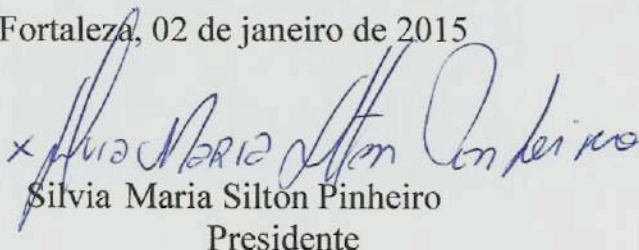 Fortaleza, 02 de janeiro de 2015
x Silvia Maria Silton Pinheiro
Silvia Maria Silton Pinheiro
Presidente